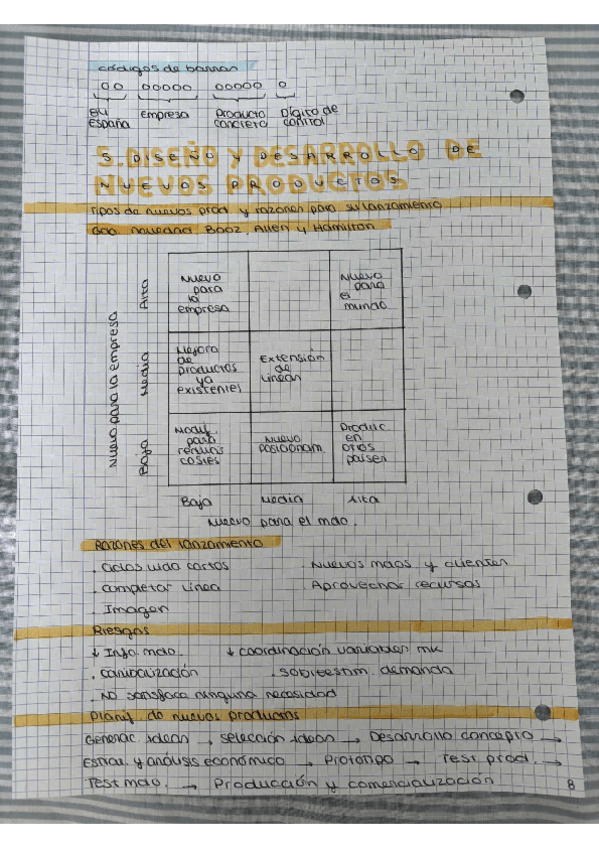 códigos de barras
00 00000 00000 0
84 España
empresa
producto concreto
Dígito de control
5. DISEÑO Y DESARROLLO DE
NUEVOS PRODUCTOS
Tipos de nuevos prod y razones para su lanzamiento
Booz, Allen y Hamilton
Nuevo para la empresa
Alta
Nuevo para la empresa
Nuevo para el mundo
Media
Mejora de productos ya existentes
Extensión de líneas
Baja
Modif. para reducir costes
Nuevo posicionam.
Produc en otros países
Baja Media Alta
Nuevo para el mdo.
Razones del lanzamiento
. Ciclos vida cortos . Nuevos mdos y clientes
. Completar Línea . Aprovechar recursos
. Imagen
Riesgos
↓ Info. mdo. ↓ coordinación variables mk
. Canibalización . sobreestim. demanda
. No satisface ninguna necesidad
Planif. de nuevos productos
Generac. ideas → selección ideas → Desarrollo concepto →
Estrat. y análisis económico → Prototipo → Test prod. →
Test mdo. → Producción y comercialización
8